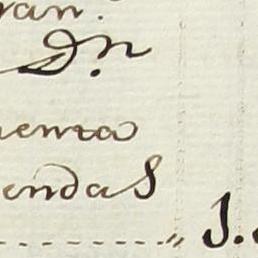 ran.
Dn.
uenta
endas
1.